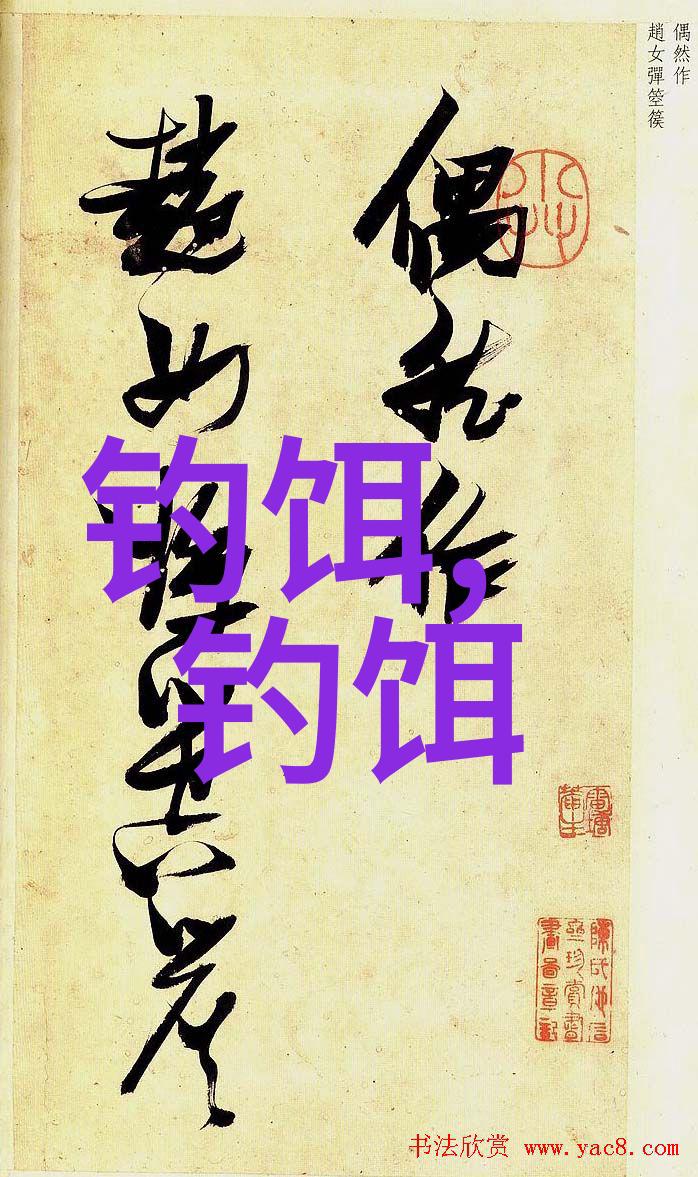 偶然作
趙女彈箜篌
偶然作
趙女彈箜篌
钓饵,
钓饵
书法欣赏 www.yac8.com